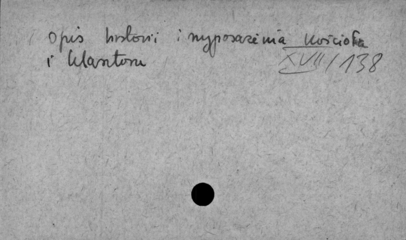 Opis historii i wyposażenia Kościoła
i klasztoru
XVII/138